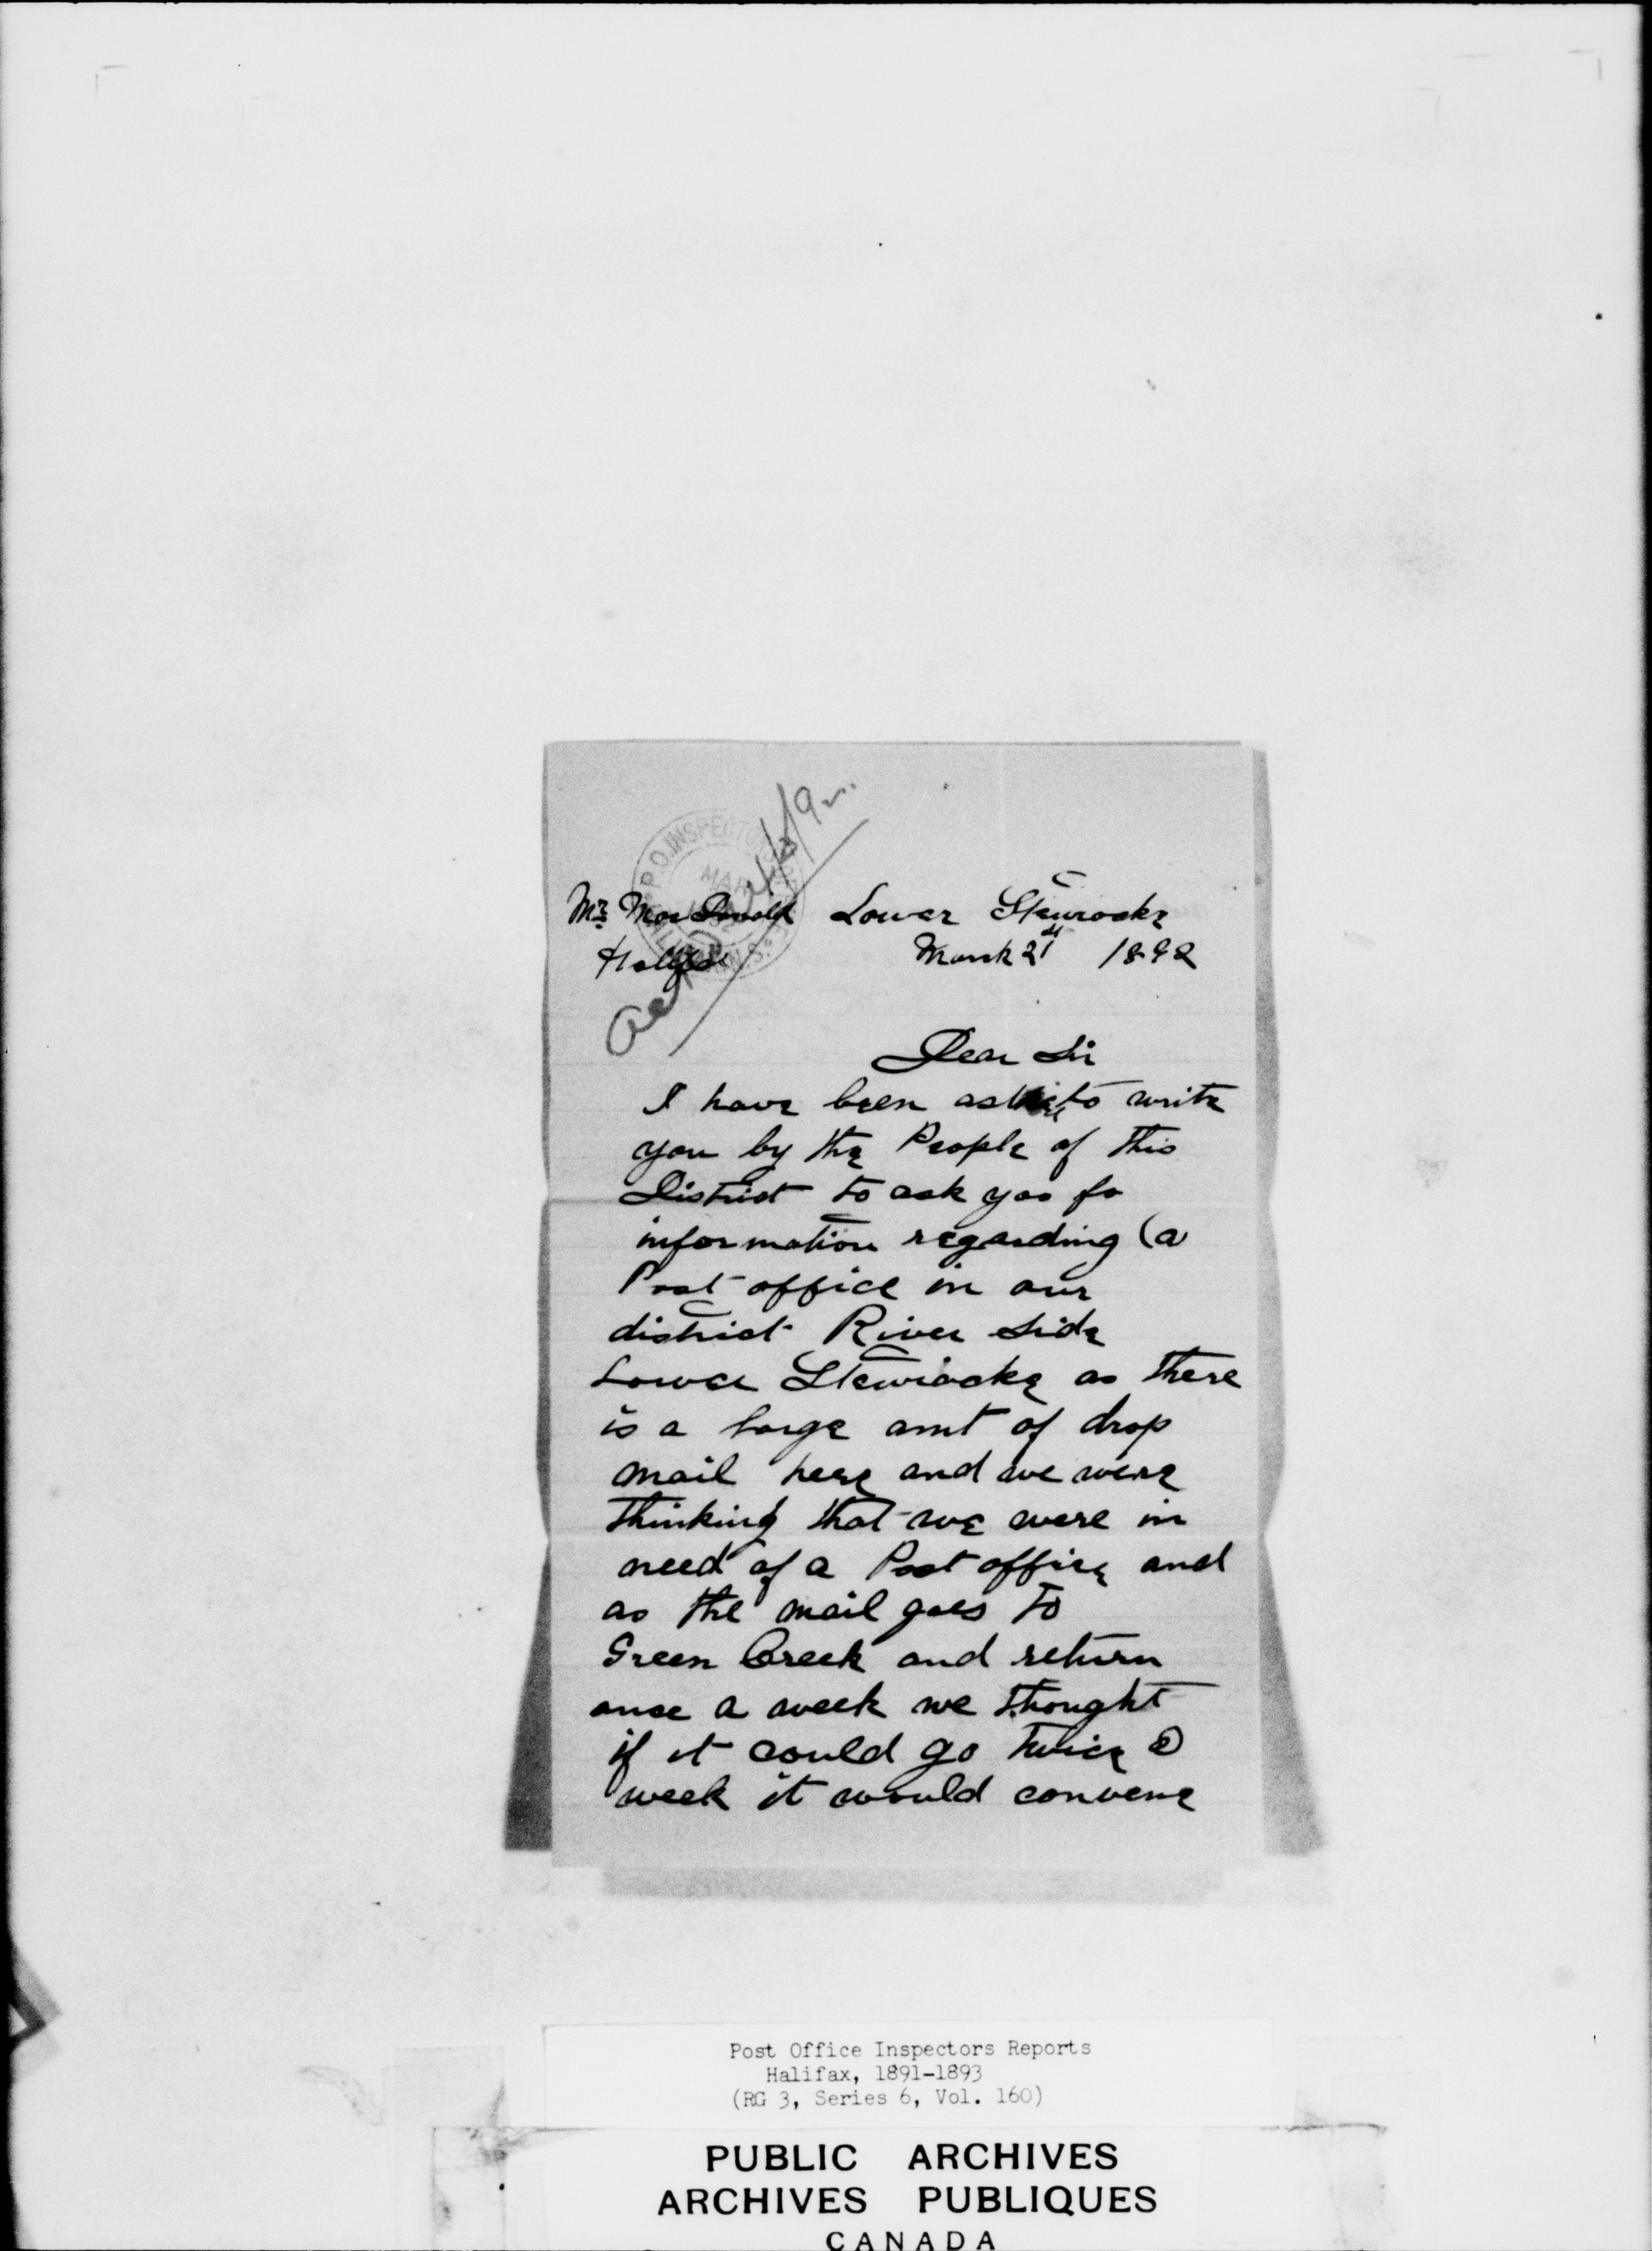 P.O. INSPECTOR
MAR
N.S.
Mr MacDonald Lower Stewiacke
Halifax March 21st 1892
Dear Sir
I have been asked to write
you by the People of this
District to ask you fo
information regarding (a
Post office in our
district River Side
Lower Stewiacke as there
is a large amt of drop
mail here and we were
thinking that we were in
need of a Post office and
as the mail goes to
Green Creek and return
once a week we thought
if it could go twice a
week it would convene
Post Office Inspectors Reports
Halifax, 1891-1893
(RG 3, Series 6, Vol. 160)
PUBLIC ARCHIVES
ARCHIVES PUBLIQUES
CANADA